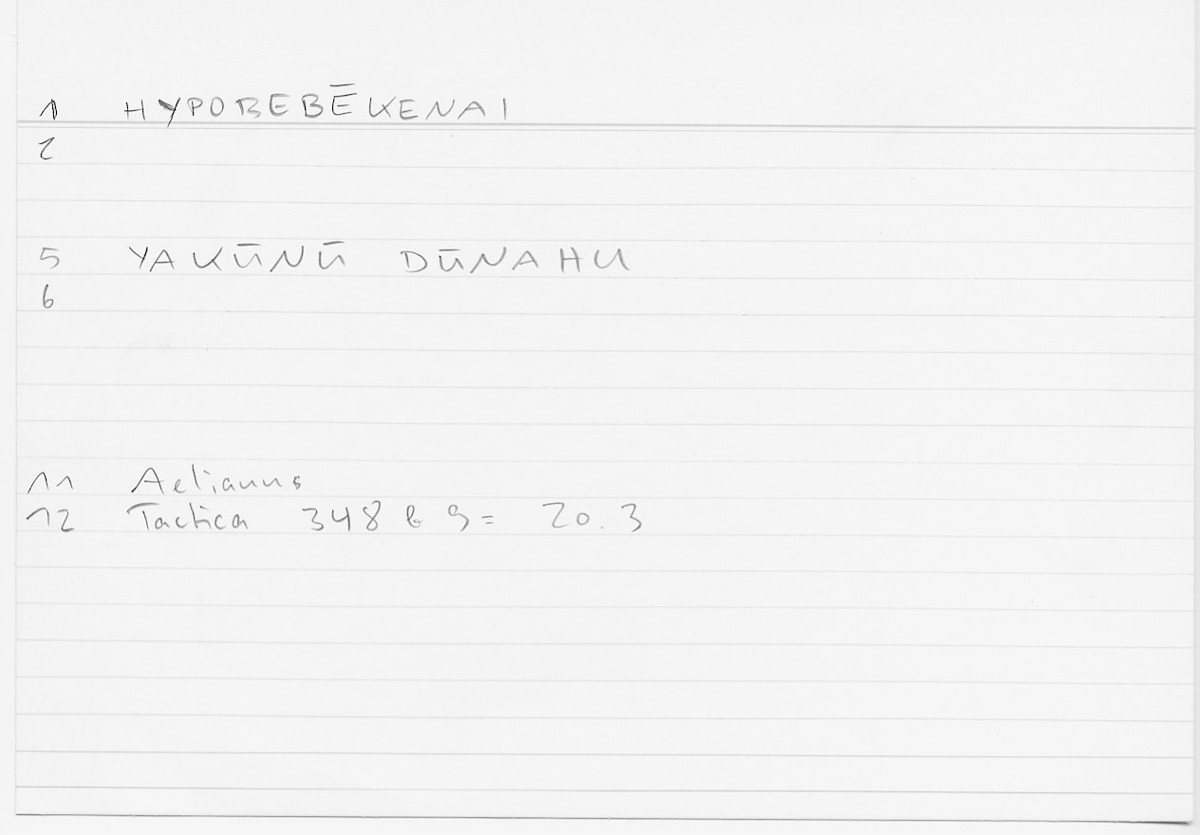 1 HYPOBEBĒKENAI
2
5 YAKŪNŪ DŪNAHU
6
11 Aelianus
12 Tactica 348 b 9 = 20.3